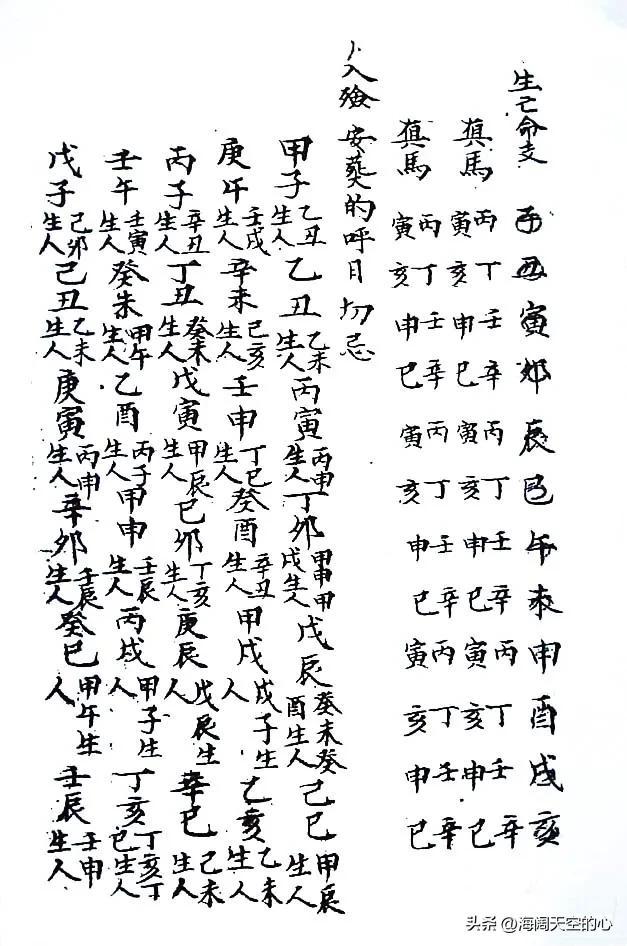 生亡命支 子丑寅卯辰巳午未申酉戌亥
真馬 丙寅 丁亥 壬申 辛巳 丙寅 丁亥 壬申 辛巳 丙寅 丁亥 壬申 辛巳
真馬 丙寅 丁亥 壬申 辛巳 丙寅 丁亥 壬申 辛巳 丙寅 丁亥 壬申 辛巳
入殮安葬的呼日切忌
甲子乙丑生人 乙丑乙未生人 丙寅丙申生人 丁卯甲申甲戌生人 戊辰癸未癸酉生人 己巳甲辰生人
庚午壬戌生人 辛未己亥生人 壬申丁巳生人 癸酉辛丑生人 甲戌戊子生人 乙亥乙未生人
丙子辛丑生人 丁丑癸未生人 戊寅甲辰生人 己卯丁亥生人 庚辰戊辰生人 辛巳己未生人
壬午壬寅生人 癸未甲午生人 乙酉丙子生人 甲申壬辰生人 丙戌甲子生人 丁亥丁亥丁巳生人
戊子己卯生人 己丑乙未生人 庚寅丙申生人 辛卯壬辰生人 癸巳甲午生人 壬辰壬申生人
头条 @海阔天空的心